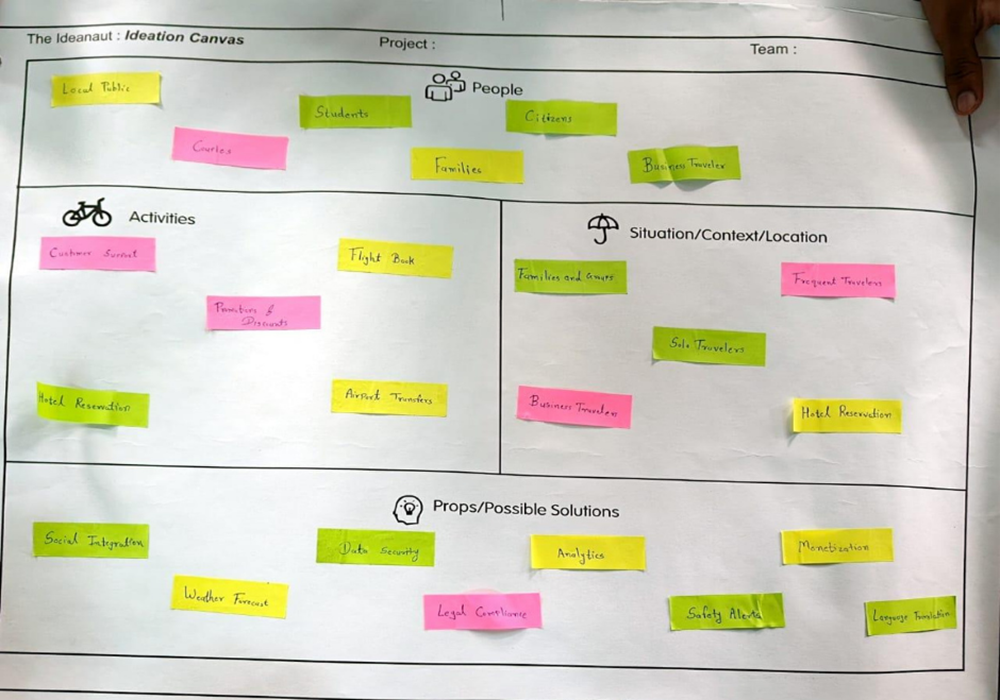 The Ideanaut : Ideation Canvas
Project :
Team :
People
Local Public
Students
Citizens
Families
Business Traveler
Activities
Flight Book
Discounts
Hotel Reservation
Airport Transfers
Situation/Context/Location
Families and
Frequent Travelers
Solo Travelers
Business Travelers
Hotel Reservation
Props/Possible Solutions
Social Integration
Data Security
Analytics
Monetization
Weather Forecast
Legal Compliance
Safety Alerts
Language Translation